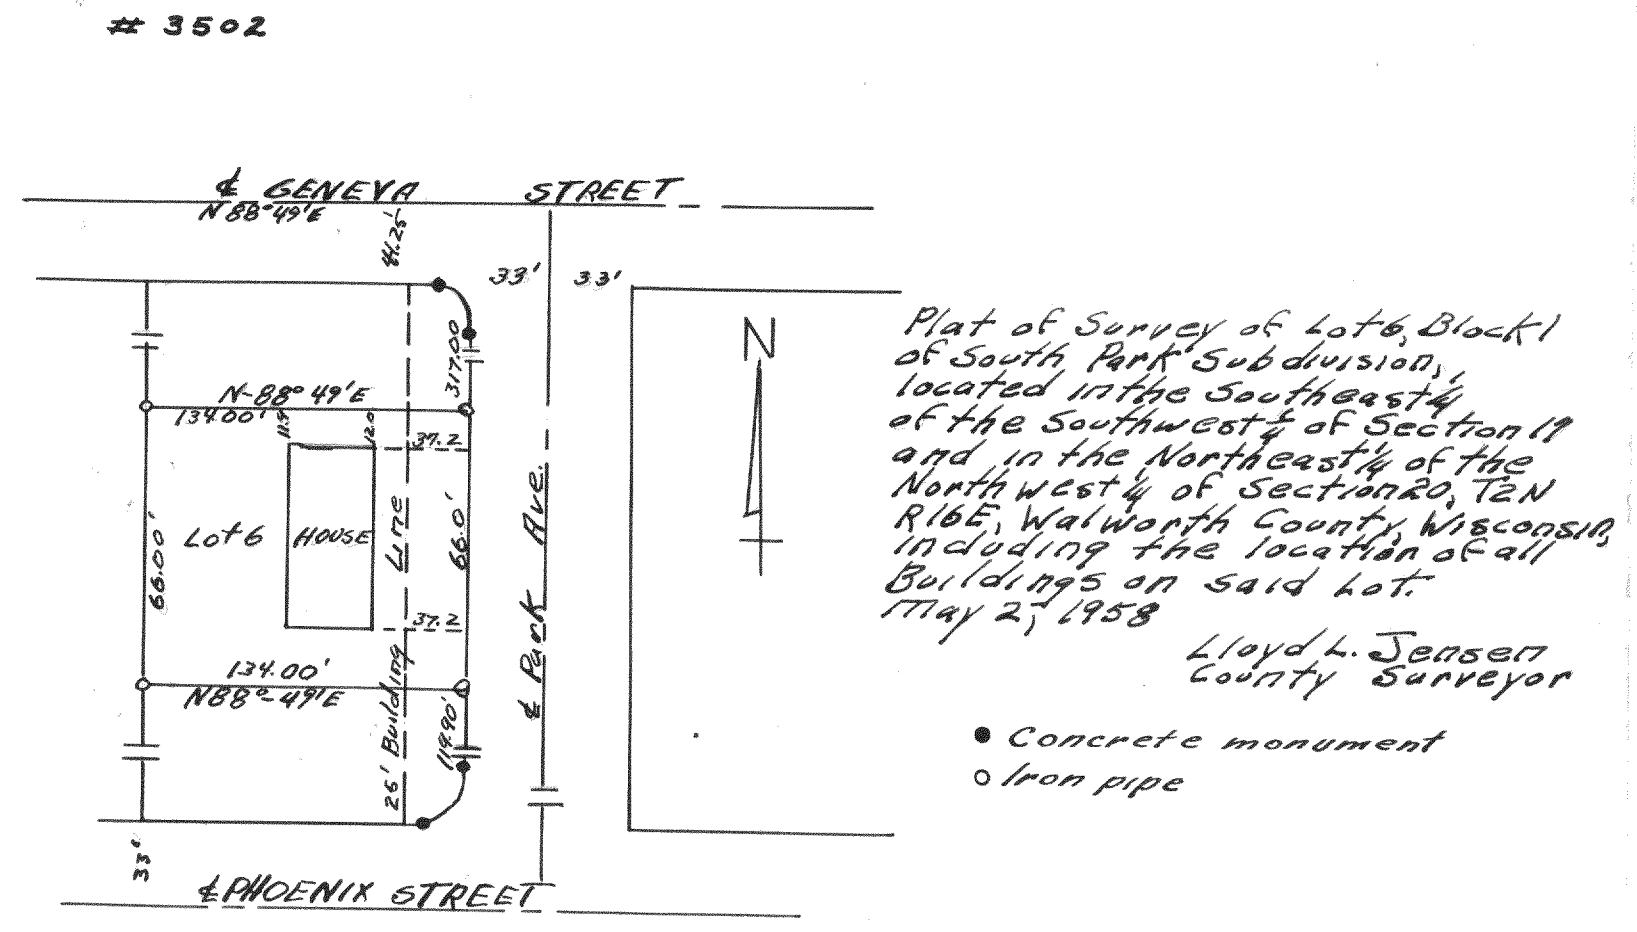 # 3502
℄ GENEVA STREET
N 88° 49' E
44.25'
33' 33'
317.00
N-88° 49' E
134.00'
11.9
12.0
37.2
Lot 6
HOUSE
66.00'
66.0'
25' Building Line
℄ Park Ave.
37.2
134.00'
N88°-49' E
119.90'
33'
℄ PHOENIX STREET
N
Plat of Survey of Lot 6, Block 1
of South Park Subdivision,
located in the Southeast ¼
of the Southwest ¼ of Section 19
and in the Northeast ¼ of the
Northwest ¼ of Section 20, T2N
R16E, Walworth County, Wisconsin,
including the location of all
Buildings on said Lot.
May 2, 1958
Lloyd L. Jensen
County Surveyor
● Concrete monument
○ Iron pipe